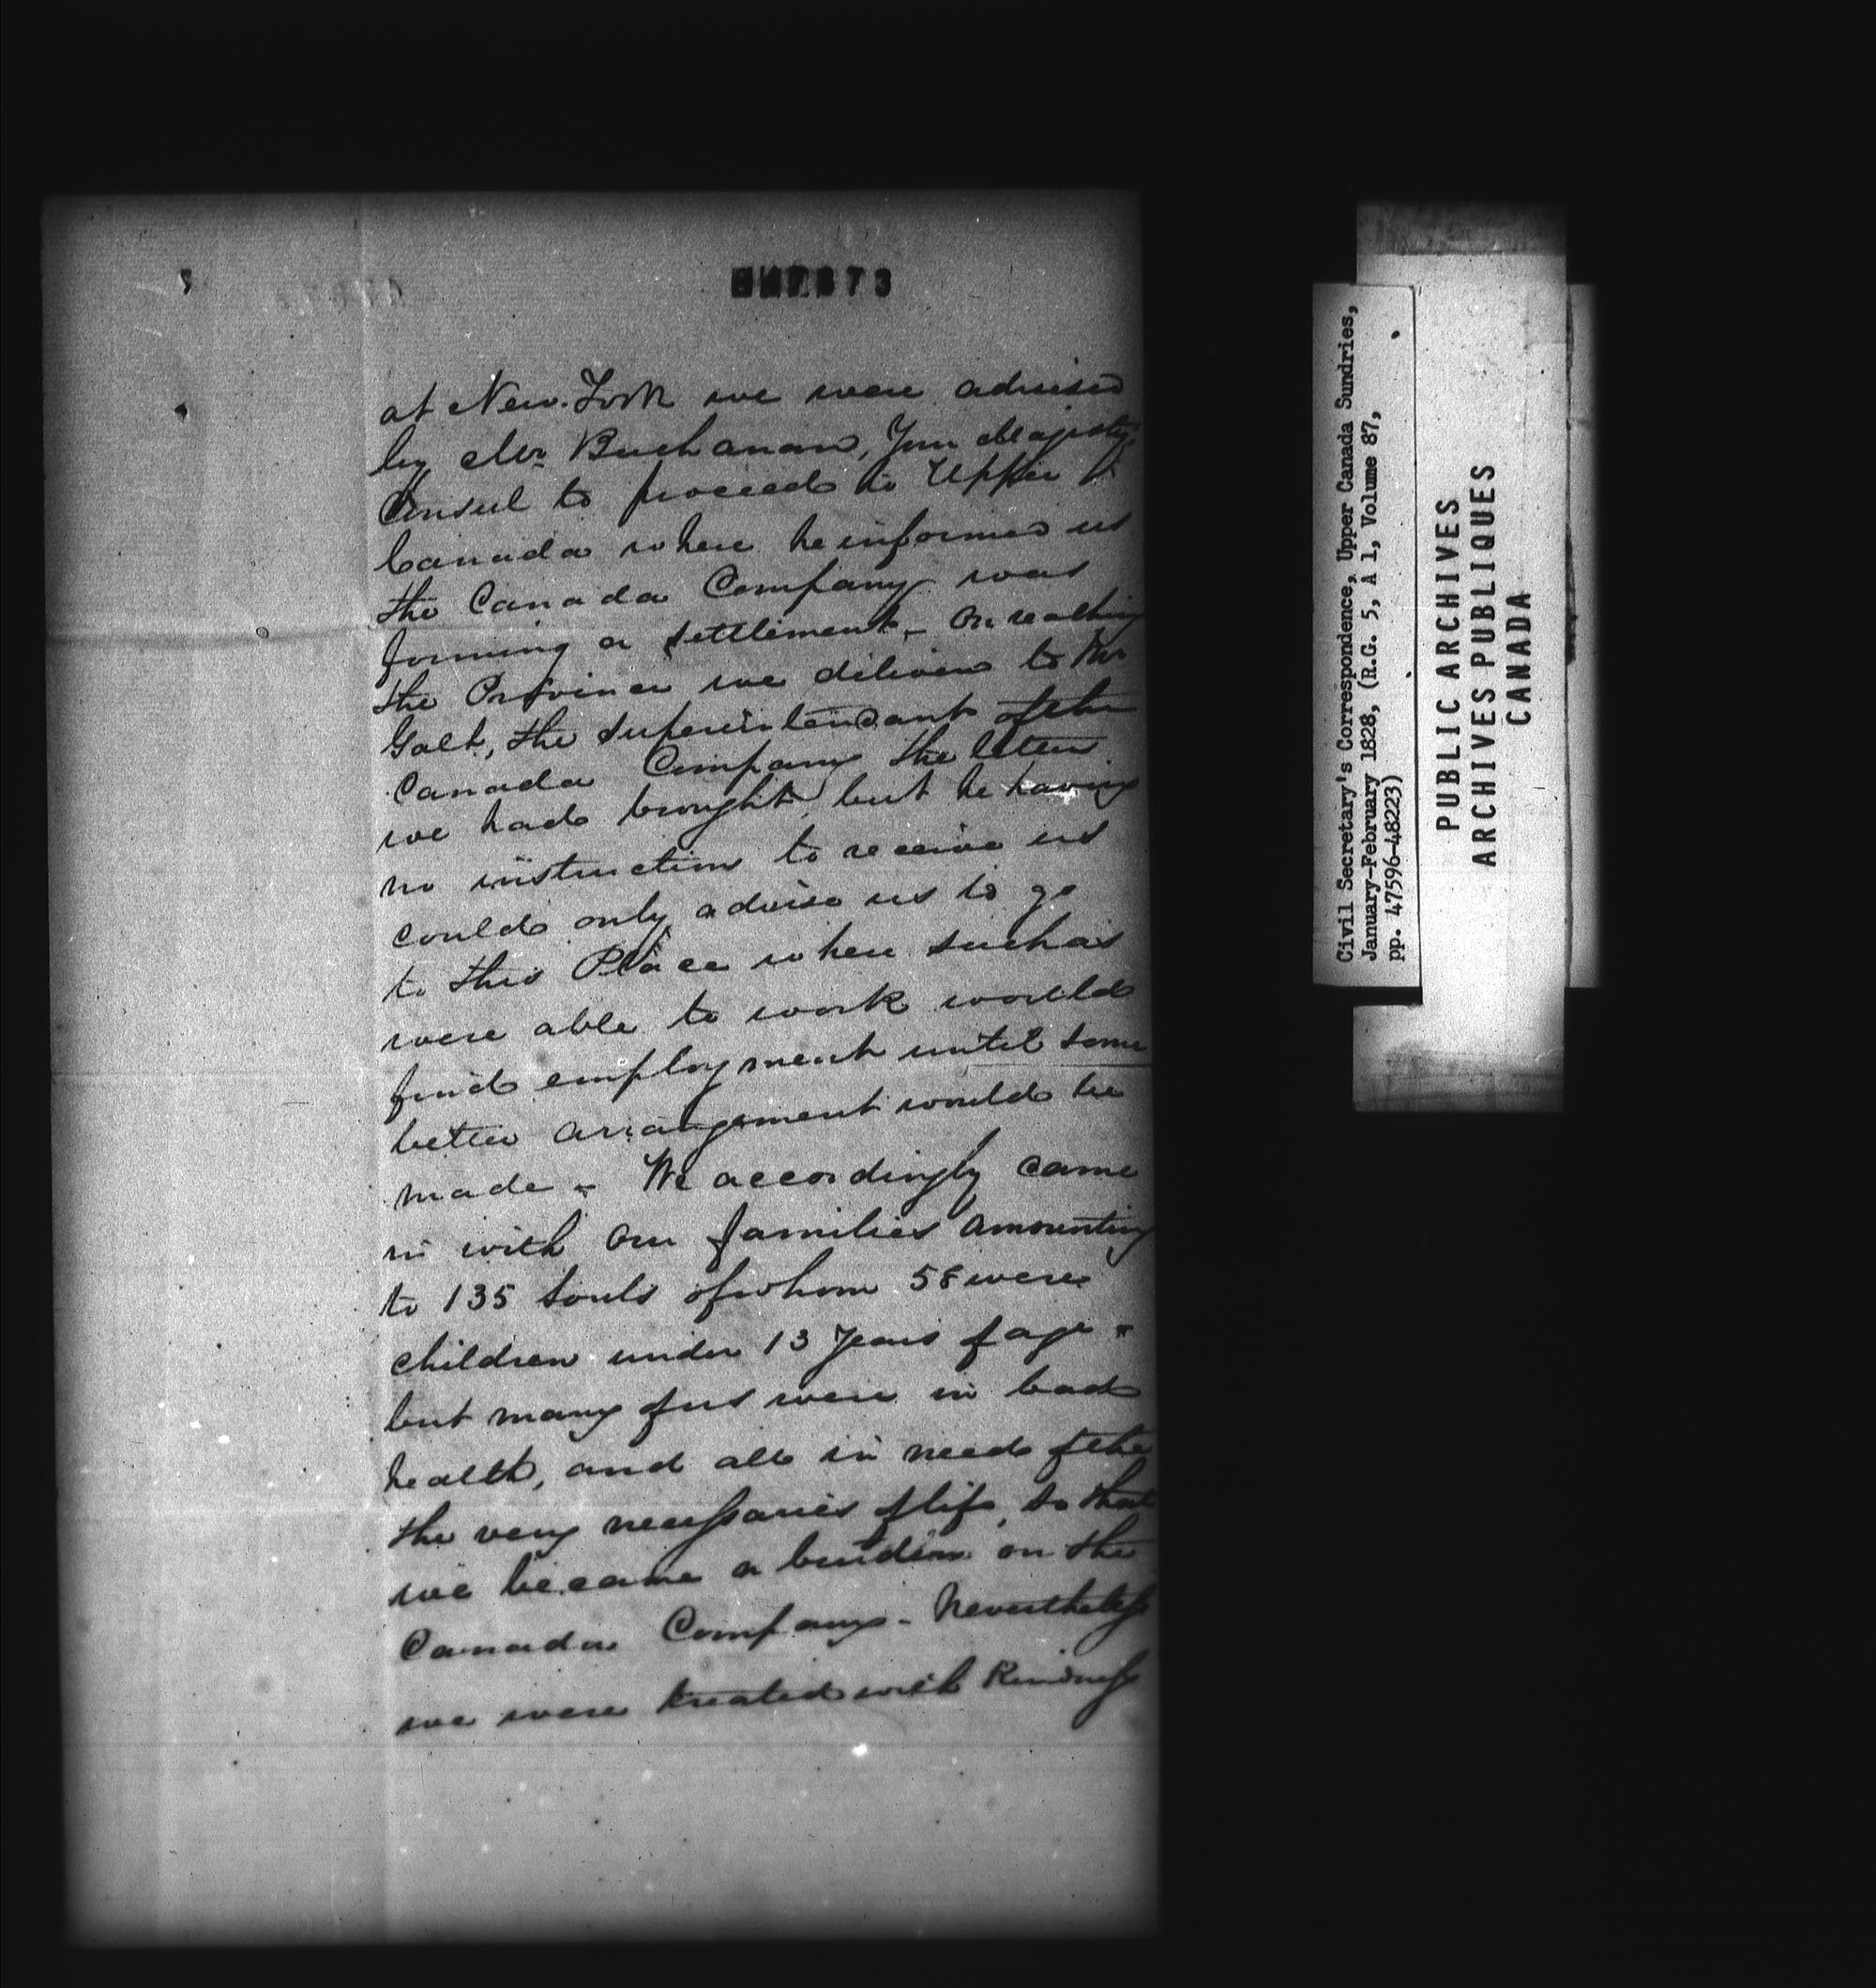 7873
at New-York we were advised
by Mr Buchanan, Your Majesty's
Consul to proceed to Upper
Canada where he informed us
the Canada Company was
forming a settlement - On reaching
the Province we deliver'd to Mr
Galt, the Superintendant of the
Canada Company the letter
we had brought, but he having
no instruction to receive us
could only advise us to go
to this Place where such as
were able to work would
find employment until some
better arrangement would be
made - We accordingly came
in with our families amounting
to 135 Souls of whom 58 were
children under 13 Years of age -
but many of us were in bad
health, and all in need of the
the very necessaries of life, so that
we became a burden on the
Canada Company - Nevertheless
we were treated with Kindness
Civil Secretary's Correspondence, Upper Canada Sundries,
January-February 1828, (R.G. 5, A 1, Volume 87,
pp. 47596-48223)
PUBLIC ARCHIVES
ARCHIVES PUBLIQUES
CANADA